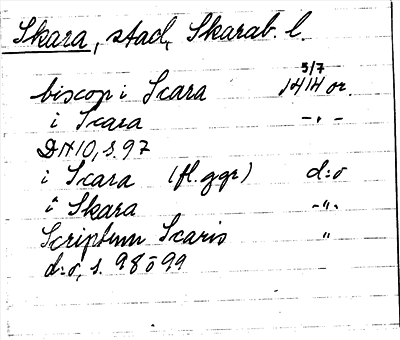 Skara, stad, Skarab. l.
5/7
biscop i Scara 1414 or.
i Scara -"-
DN 10, s. 97
i Scara (fl. ggr) d:o
i Skara -"-
Scriptum Scaris "
d:o, s. 98 o 99